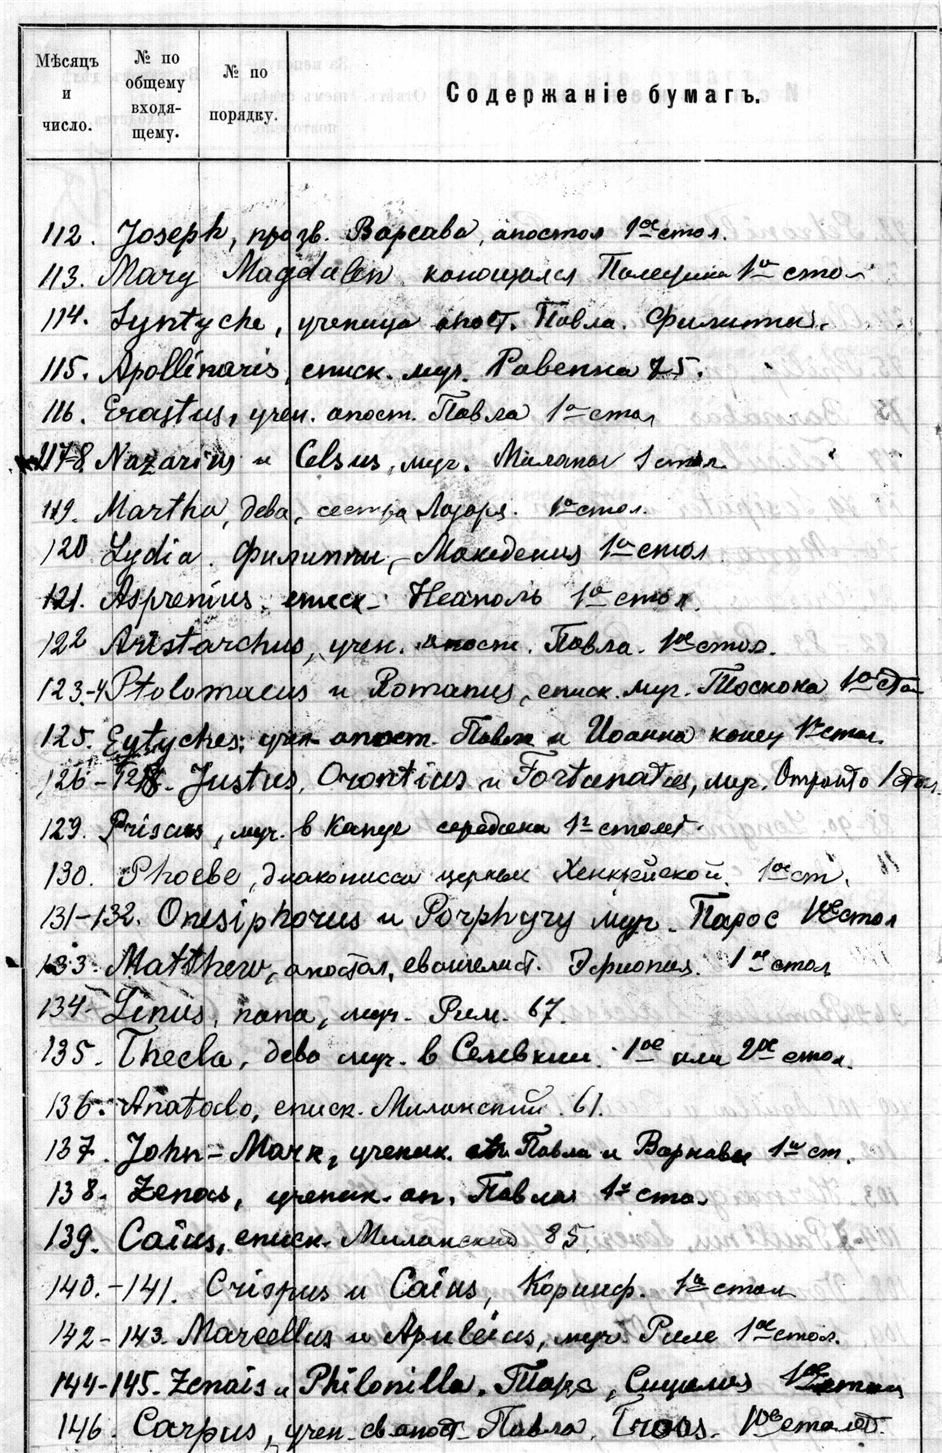 Мѣсяцъ и число.
№ по общему входя-щему.
№ по порядку.
Содержаніе бумагъ.
112. Joseph, прозв. Варсава, апостол 1ое стол.
113. Mary Magdalen Палестина 1о стол
114. Syntyche, ученица апост. Павла. Филиппы.
115. Apollinaris, еписк. муч. Равенна 75.
116. Erastus, учен. апост. Павла 1о стол
117-8 Nazarius и Celsus, муч. Миланы 1 стол
119. Martha, дева, сестра Лазаря. 1о стол.
120 Lydia. Филиппы, Македония 1о стол
121. Asprenius. еписк. Неаполь 1о стол.
122 Aristarchus, учен. апост. Павла. 1ое стол.
123-4 Ptolomaeus и Romanus, еписк. муч. Тоскана 1о стол
125. Eytyches, учен апост. Павла и Иоанна конец 1го стол.
126-128. Justus, Orontius и Fortunatus, муч. Отранто 1 стол.
129. Priscus, муч. в Капуе середина 1г столет.
130. Phoebe, диаконисса церкви Хенкрейской. 1ое ст.
131-132. Onesiphorus и Porphyry муч. Парос 1ое стол
133. Matthew, апостол, евангелист. Эфиопия. 1ое стол
134. Linus, папа, муч. Рим. 67.
135. Thecla, дева муч. в Селевкии. 1ое или 2ое стол.
136. Anatolo, еписк. Миланский. 61.
137. John-Mark, ученик. ап. Павла и Варнавы 1о ст.
138. Zenas, ученик. ап. Павла 1г стол.
139. Caius, еписк. Миланский 85.
140.-141. Crispus и Caius, Коринф. 1о стол
142-143. Marcellus и Apuleius, муч. Риме 1ое стол.
144-145. Zenais и Philonilla. Тарс, 1ое стол
146. Carpus, учен. св. апост. Павла, Troas. 1ое столет.